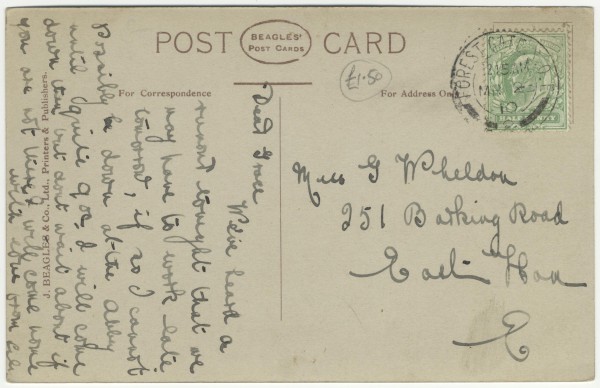 POST CARD
BEAGLES'
POST CARDS
For Correspondence
For Address Only
£1.50
FOREST GATE
10
HALFPENNY
J. BEAGLES & Co., Ltd., Printers & Publishers.
Dear Grace
We've heard a
rumour tonight that we
may have to work late
tomorrow, if so I cannot
possibly be down at the Abbey
until quite 9 oc, I will come
down they but dont wait about if
you are not there I will come home
with love from
Miss G Wheldon
251 Barking Road
East Ham
E